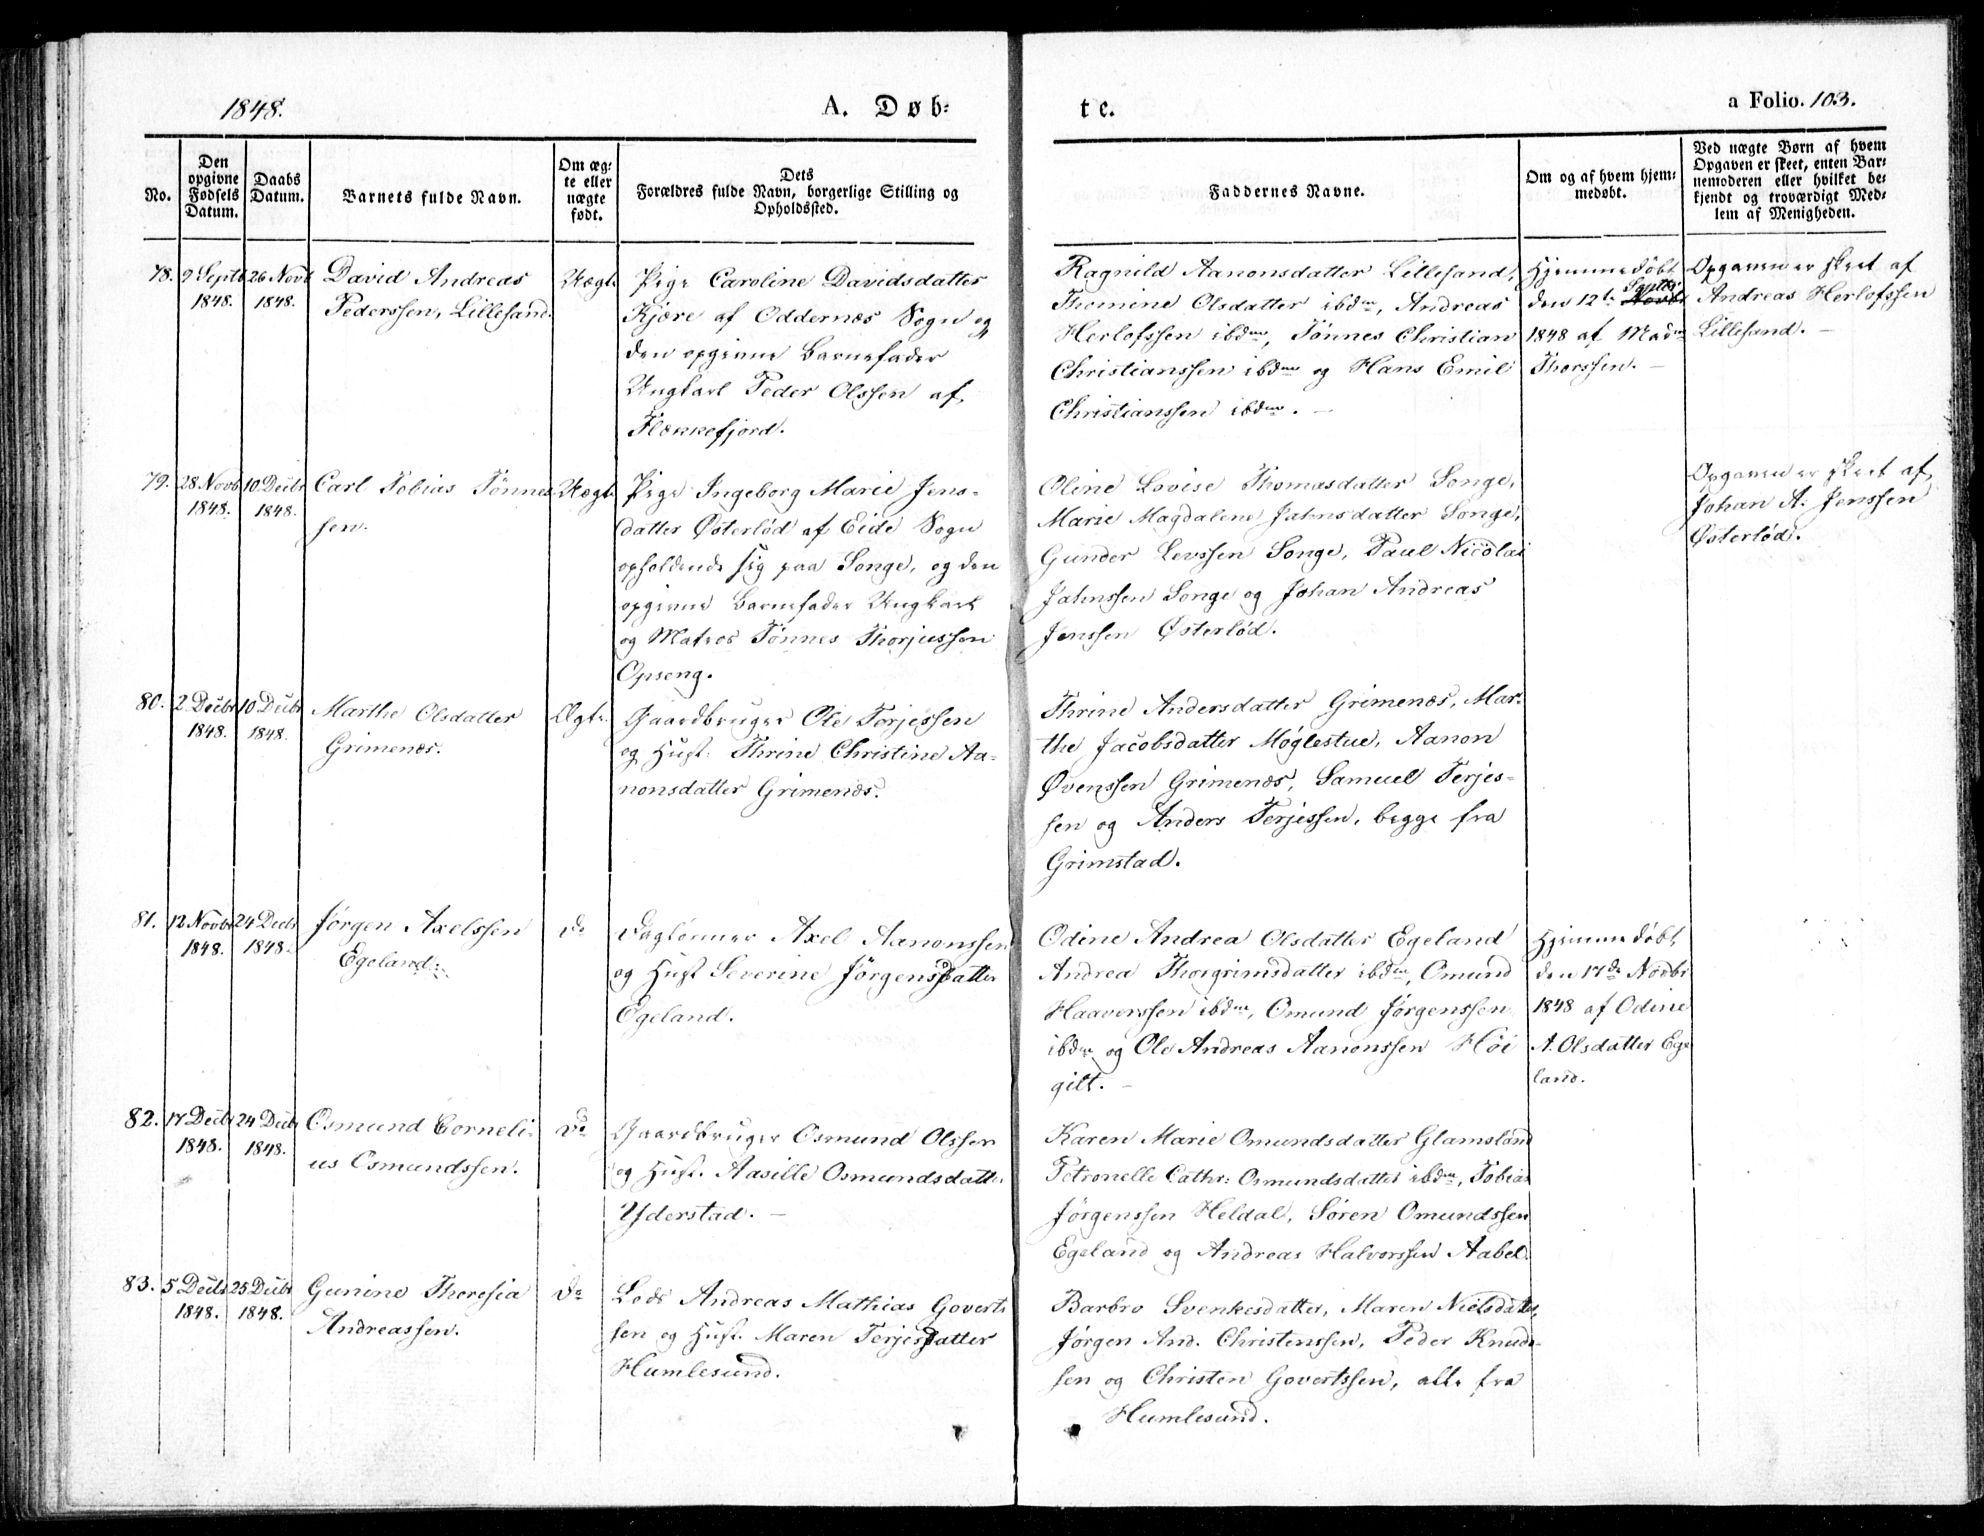 1848.
A. Døb-
te.
a Folio. 103.
No.
Den
opgivne
Fødsels
Datum.
Daabs
Datum.
Barnets fulde Navn.
Om æg-
te eller
uægte
født.
Dets
Forældres fulde Navn, borgerlige Stilling og
Opholdssted.
Faddernes Navne.
Om og af hvem hjem-
medøbt.
Ved uægte Børn af hvem
Opgaven er skeet, enten Bar-
nemoderen eller hvilket be-
kjendt og troværdigt Med-
lem af Menigheden.
78.
9 Septb
1848.
26 Novb
1848.
David Andreas
Pederssen, Lillesand.
Uægte
Pige Caroline Davidsdatter
Kjære af Oddernæs Sogn og
den opgivne Barnefader
Ungkarl Peder Olssen af
Flekkefjord.
Ragnild Aanonsdatter Lillesand,
Thomine Olsdatter ibdm, Andreas
Herlofssen ibdm, Tønnes Christian
Christianssen ibdm og Hans Emil
Christianssen ibdm. –
Hjemmedøbt
Septbr
den 12te Novbr
1848 af Madm
Thorssen. –
Opgaven er skeet af
Andreas Herlofssen
Lillesand. –
79.
28 Novb
1848.
10 Decbr
1848.
Carl Tobias Tønnes-
sen.
Uægte
Pige Ingeborg Marie Jens-
datter Østerlød af Eide Sogn
opholdende sig paa Songe, og den
opgivne Barnefader Ungkarl
og Matros Tønnes Thorjussen
Opseng.
Oline Lovise Thomasdatter Songe,
Marie Magdalene Jahnsdatter Songe,
Gunder Levssen Songe, Paul Nicolai
Jahnssen Songe og Johan Andreas
Jenssen Østerlød.
Opgaven er skeet af
Johan A. Jenssen
Østerlød.
80.
2 Decbr
1848.
10 Decbr
1848.
Marthe Olsdatter
Grimenæs.
Ægte.
Gaardbruger Ole Terjessen
og Hust. Thrine Christine Aa-
nonsdatter Grimenæs.
Thrine Andersdatter Grimenæs, Mar-
the Jacobsdatter Møglestue, Aanon
Øvenssen Grimenæs, Samuel Terjes-
sen og Anders Terjessen, begge fra
Grimstad.
81.
12 Novbr
1848.
24 Decbr
1848.
Jørgen Axelssen
Egeland.
Do
Daglønner Axel Aanonssen
og Hust Severine Jørgensdatter
Egeland.
Odine Andrea Olsdatter Egeland
Andrea Thorgrimsdatter ibdm, Omund
Haaverssen ibdm, Omund Jørgenssen
ibdm og Ole Andreas Aanonssen Høi
gilt. –
Hjemmedøbt
den 17de Novbr
1848 af Odine
A. Olsdatter Ege
land.
82.
17 Decbr
1848.
24 Decbr
1848.
Osmund Corneli-
us Osmundssen.
Do
Gaardbruger Osmund Olssen
og Hust. Aasille Osmundsdatter
Yderstad. –
Karen Marie Omundsdatter Glamsland
Petronelle Cathr: Osmundsdatter ibdm, Tobias
Jørgenssen Heldal, Søren Omundssen
Egeland og Andreas Halvorssen Aabel.
83.
5 Decbr
1848.
25 Decbr
1848.
Gunine Theresia
Andreassen.
Do
Lods Andreas Mathias Goverts
sen og Hust. Maren Terjesdatter
Humlesund.
Barbro Svenkesdatter, Maren Nielsdatter,
Jørgen And. Christenssen, Peder Knud-
sen og Christen Govertssen, alle fra
Humlesund.